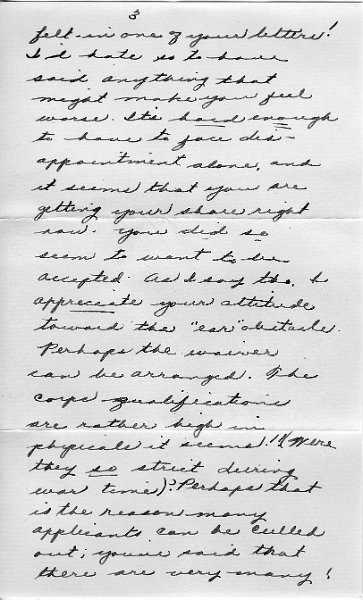 3
felt in one of your letters!
I'd hate so to have
said anything that
might make you feel
worse. It's hard enough
to have to face dis-
appointment alone, and
it seems that you are
getting your share right
now. You did so
seem to want to be
accepted. As I say tho, I
appreceate your attitude
toward the "ear" obstacle.
Perhaps the waiver
can be arranged. The
corps qualifications
are rather high in
physicals it seems! (Were
they so strict during
war time)? Perhaps that
is the reason many
applicants can be culled
out; youve said that
there are very many!